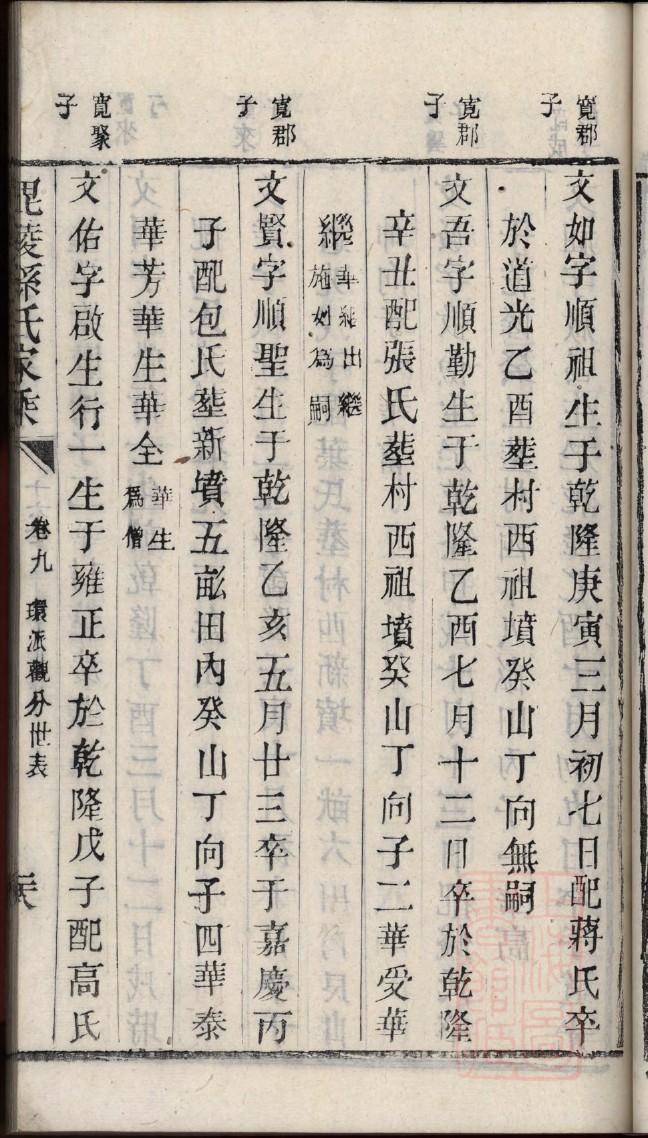 寛郡子
文如字順祖生于乾隆庚寅三月初七日配蔣氏卒
於道光乙酉塟村西祖墳癸山丁向無嗣
寛郡子
文吾字順勤生于乾隆乙酉七月十三日卒於乾隆
辛丑配張氏塟村西祖墳癸山丁向子二華受華
繼 華繼出繼施如為嗣
寛郡子
文賢字順聖生于乾隆乙亥五月廿三卒于嘉慶丙
子配包氏塟新墳五畝田內癸山丁向子四華泰
華芳華生華全 華生為僧
寛聚子
文佑字啟生行一生于雍正卒於乾隆戊子配高氏
毘陵孫氏家乘 卷九 環派觀分世表